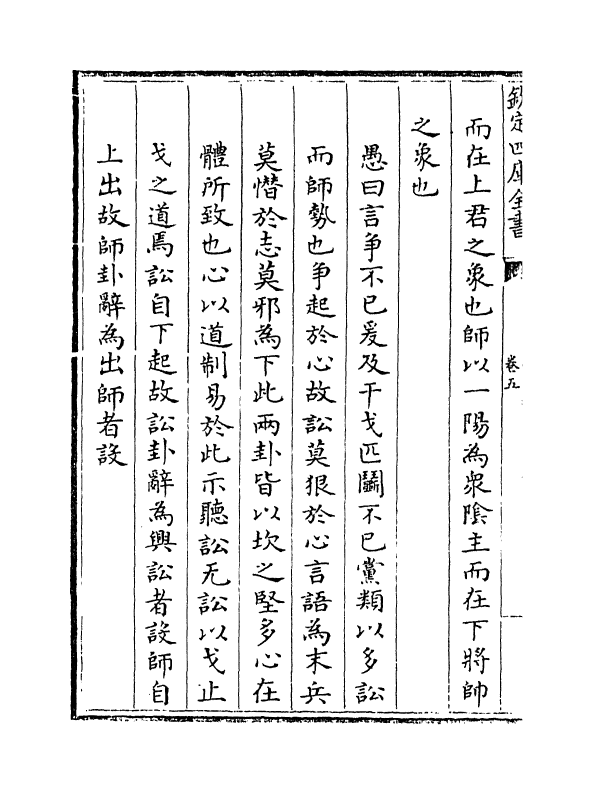 欽定四庫全書
卷五
而在上君之象也師以一陽為衆陰主而在下將帥
之象也
愚曰言争不已爰及干戈匹鬭不已黨類以多訟
而師勢也争起於心故訟莫狠於心言語為末兵
莫憯於志莫邪為下此兩卦皆以坎之堅多心在
體所致也心以道制易於此示聽訟无訟以戈止
戈之道焉訟自下起故訟卦辭為興訟者設師自
上出故師卦辭為出師者設